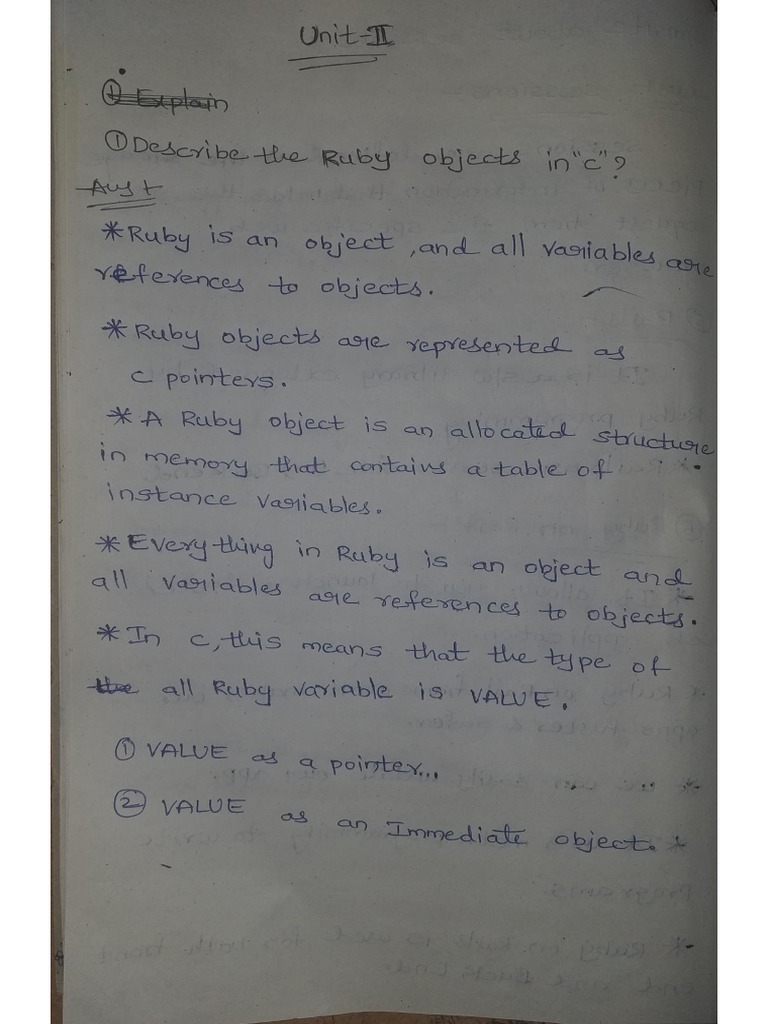 Unit-II
① Explain
① Describe the Ruby objects in "c"?
Ans +
* Ruby is an object, and all variables are
references to objects.
* Ruby objects are represented as
c pointers.
* A Ruby object is an allocated structure
in memory that contains a table of
instance variables.
* Everything in Ruby is an object and
all variables are references to objects.
* In c, this means that the type of
the all Ruby variable is VALUE.
① VALUE as a pointer...
② VALUE as an Immediate object.